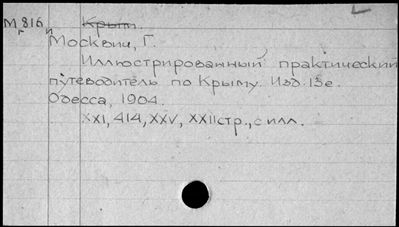 М 816
Крым.
Москвич, Г.
Иллюстрированный практический
путеводитель по Крыму. Изд. 13е.
Одесса, 1904.
XXI, 414, XXV, XXII стр., с илл.